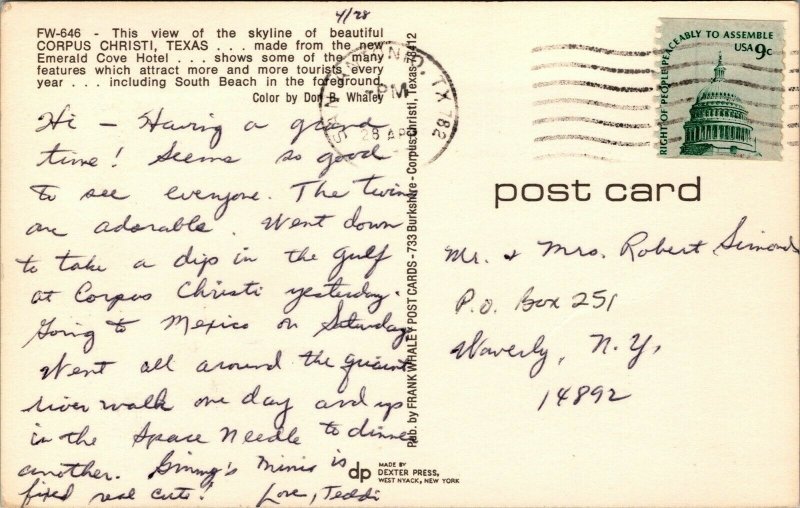 4/28
FW-646 - This view of the skyline of beautiful
CORPUS CHRISTI, TEXAS . . . made from the new
Emerald Cove Hotel . . . shows some of the many
features which attract more and more tourists every
year . . . including South Beach in the foreground.
Color by Don B. Whaley
Hi - Having a grand
time! Seems so good
to see everyone. The twins
are adorable. Went down
to take a dip in the gulf
at Corpus Christi yesterday.
Going to Mexico on Saturday.
Went all around the quaint
river walk one day and up
in the Space Needle to dinner
another. Ginny's Minis is
fixed real cute! Love, Teddi
Pub. by FRANK WHALEY POST CARDS - 733 Burkshire - Corpus Christi, Texas 78412
SAN ANTONIO, TX 782
PM
28 APR
RIGHT OF PEOPLE PEACEABLY TO ASSEMBLE
USA 9c
post card
Mr. & Mrs. Robert Simonds
P.O. Box 251
Waverly, N.Y.
14892
dp
MADE BY
DEXTER PRESS,
WEST NYACK, NEW YORK